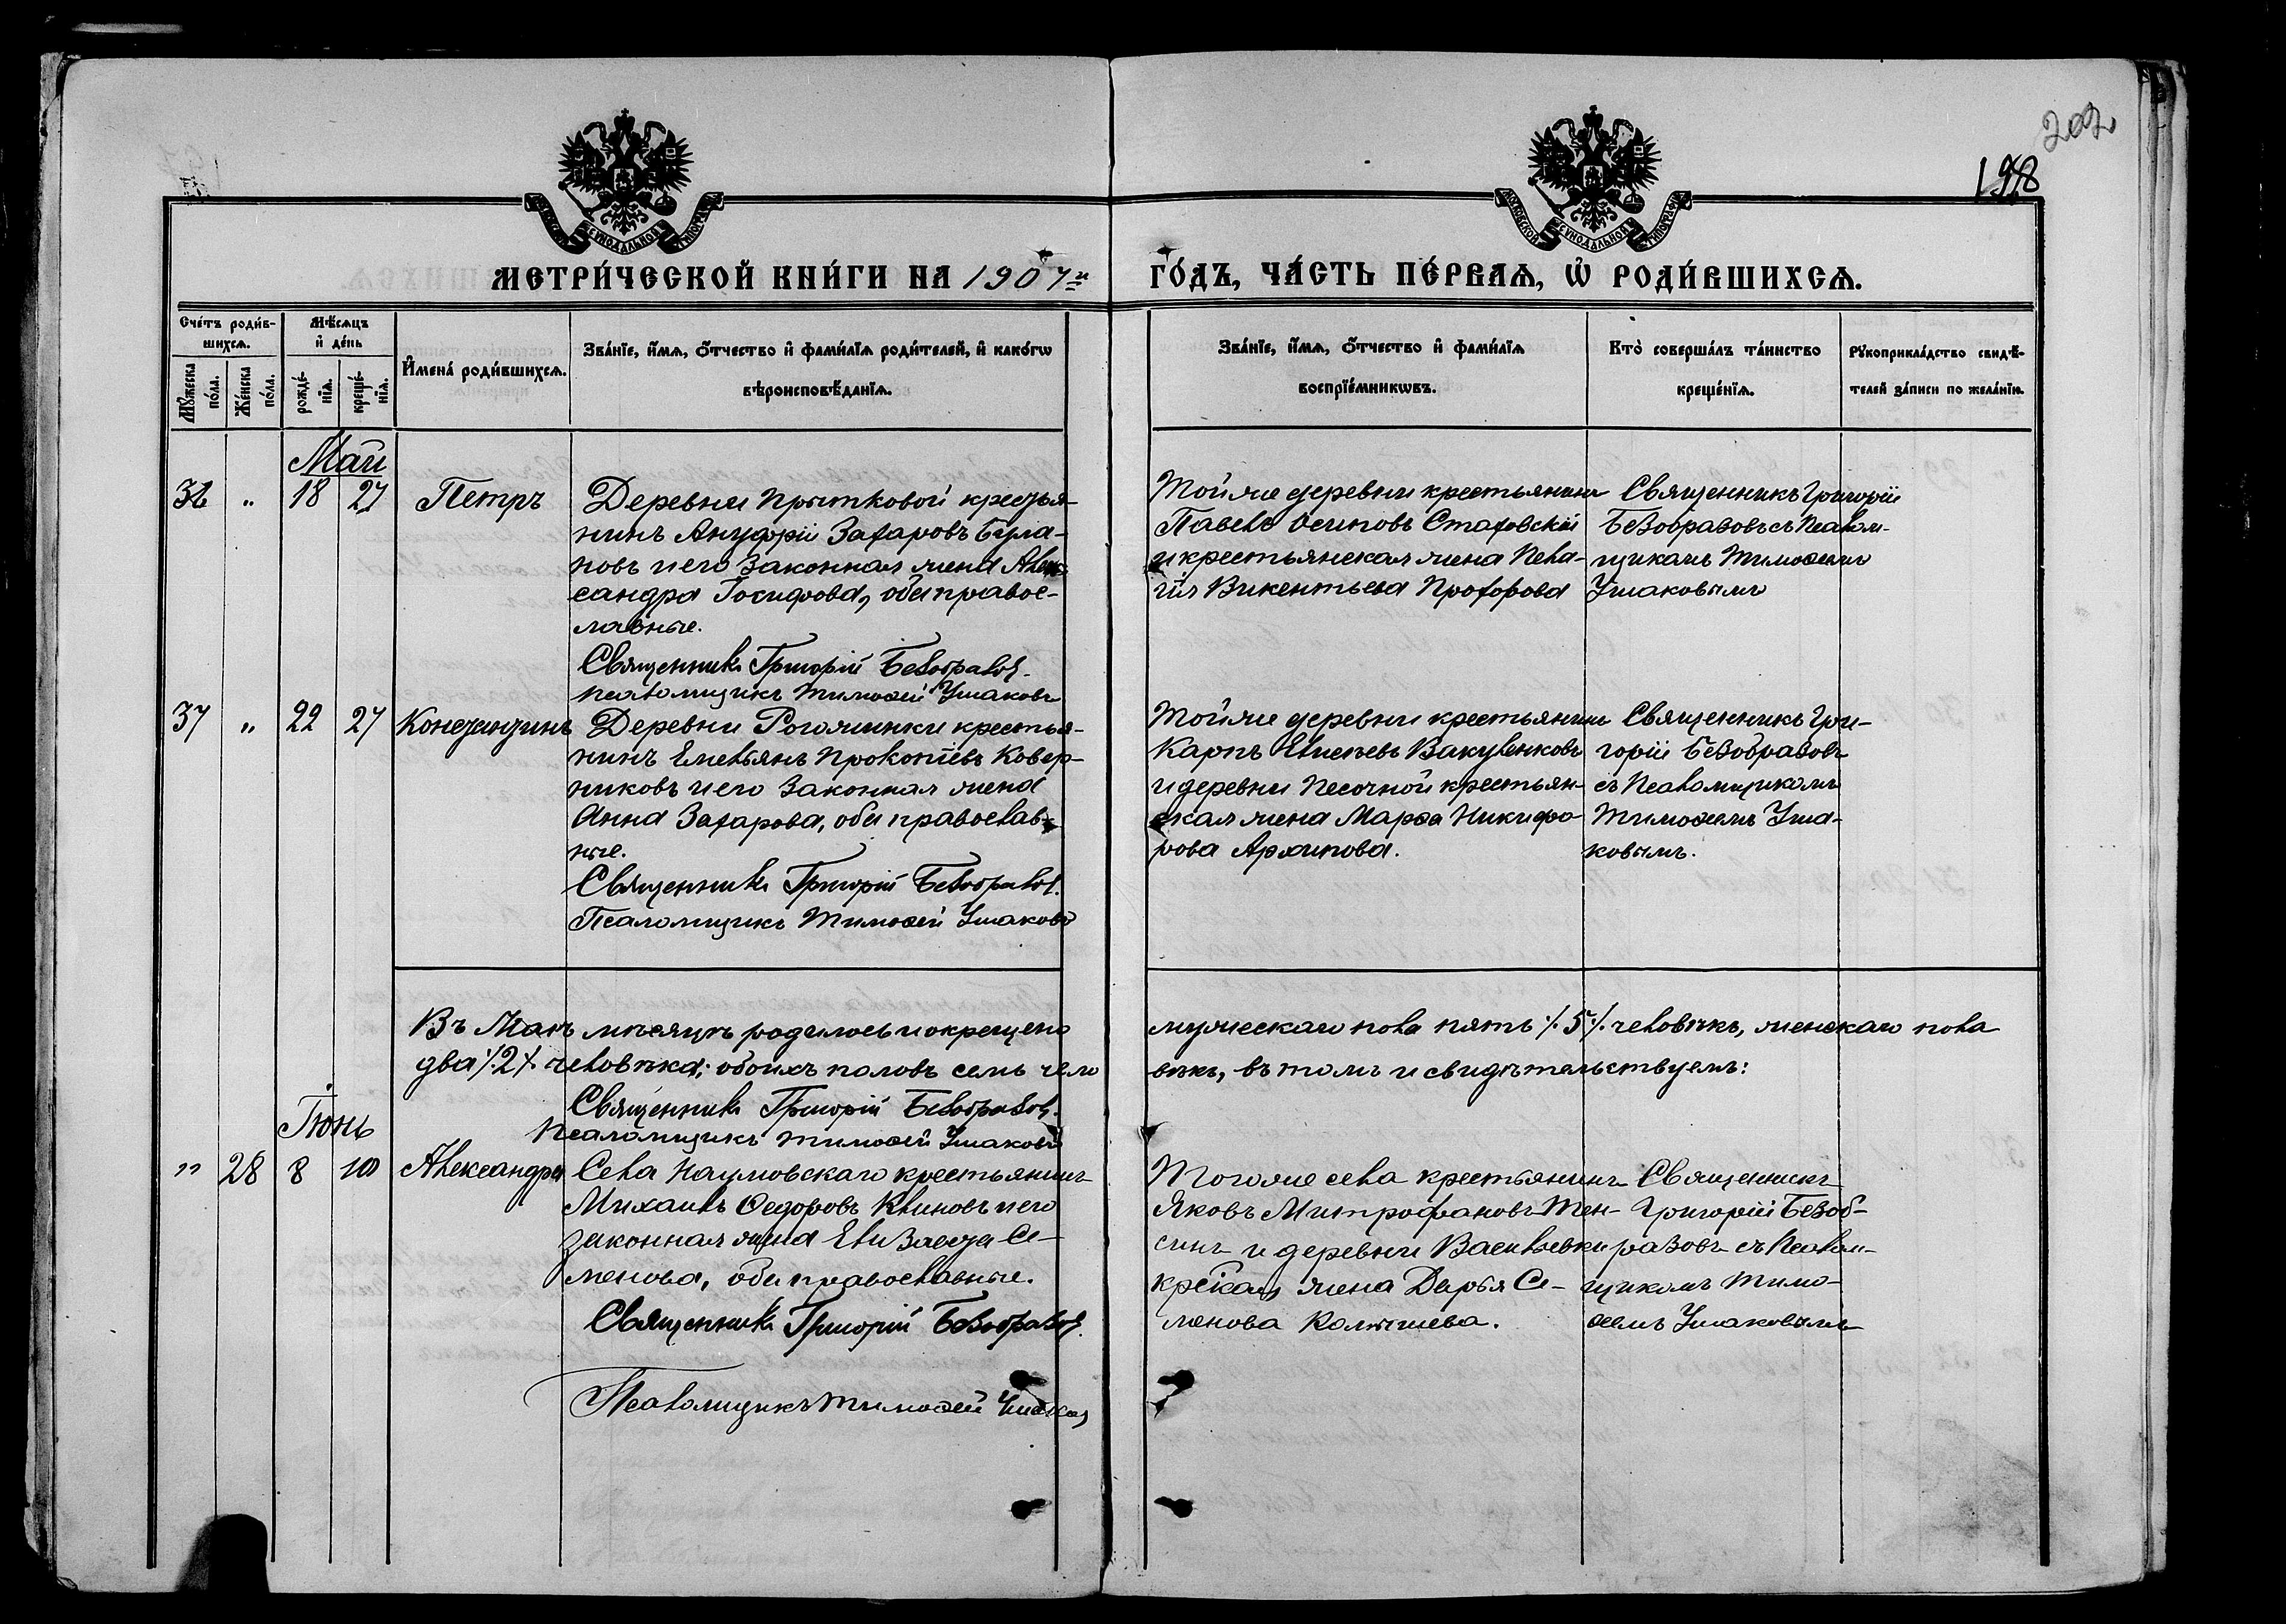 202
198
МЕТРИ́ЧЕСКОЙ КНИ́ГИ НА 1907й
ГО́ДЪ, ЧА́СТЬ ПЕ́РВАѦ, Ѽ РОДИ́ВШИХСѦ.
Сче́тъ роди́в-
шихсѧ.
Мꙋ́жеска по́ла.
Же́нска по́ла.
Мѣ́сѧцъ
и҆ де́нь
рожде́-
нїѧ.
креще́-
нїѧ.
И҆мена̀ роди́вшихсѧ.
Зва́нїе, и҆́мѧ, ѻ҆́тчество и҆ фами́лїѧ роди́телей, и҆ како́гѡ
вѣроисповѣ́данїѧ.
Зва́нїе, и҆́мѧ, ѻ҆́тчество и҆ фами́лїѧ
воспрїе́мникѡвъ.
Кто̀ соверша́лъ та́инство
креще́нїѧ.
Рꙋкоприкла́дство свидѣ́-
телей за́писи по жела́нїю.
Май
36 " 18 27 Петръ
Деревни Прытковой крестья-
нинъ Ануфрій Захаровъ Була-
новъ и его законная жена Алек-
сандра Іосифова, оба правос-
лавные.
Священникъ Григорій Безобразовъ.
Псаломщикъ Тимоѳей Ушаковъ
Той же деревни крестьянинъ
Павелъ Осиповъ Стаховскій
и крестьянская жена Пела-
гія Викентьева Прохорова
Священникъ Григорій
Безобразовъ съ Псалом-
щикомъ Тимоѳеемъ
Ушаковымъ
37 " 22 27 Константинъ
Деревни Рогожинки крестья-
нинъ Емельянъ Прокопіевъ Ковер-
никовъ и его законная жена
Анна Захарова, оба православ-
ные.
Священникъ Григорій Безобразовъ.
Псаломщикъ Тимоѳей Ушаковъ
Той же деревни крестьянинъ
Карпъ Елисеевъ Вакуленковъ
и деревни Песочной крестьян-
ская жена Марѳа Никифо-
рова Архипова.
Священникъ Гри-
горій Безобразовъ
съ Псаломщикомъ
Тимоѳеемъ Уша-
ковымъ.
Въ Маѣ мѣсяцѣ родилось и окрещено
мужескаго пола пять ./.5./. человѣкъ, женскаго пола
два ./.2./. человѣка; обоихъ половъ семь чело
вѣкъ, въ томъ и свидѣтельствуемъ:
Священникъ Григорій Безобразовъ.
Псаломщикъ Тимоѳей Ушаковъ
Іюнь
" 28 8 10 Александра
Села Наумовскаго крестьянинъ
Михаилъ Ѳедоровъ Клиновъ и его
законная жена Елизавета Се-
менова, оба православные.
Священникъ Григорій Безобразовъ.
Псаломщикъ Тимоѳей Ушаковъ
Того же села крестьянинъ
Яковъ Митрофановъ Тен-
синъ и деревни Васильевки
креская жена Дарья Се-
менова Калтышева.
Священникъ
Григорій Безоб-
разовъ съ Псалом-
щикомъ Тимо-
ѳеемъ Ушаковымъ